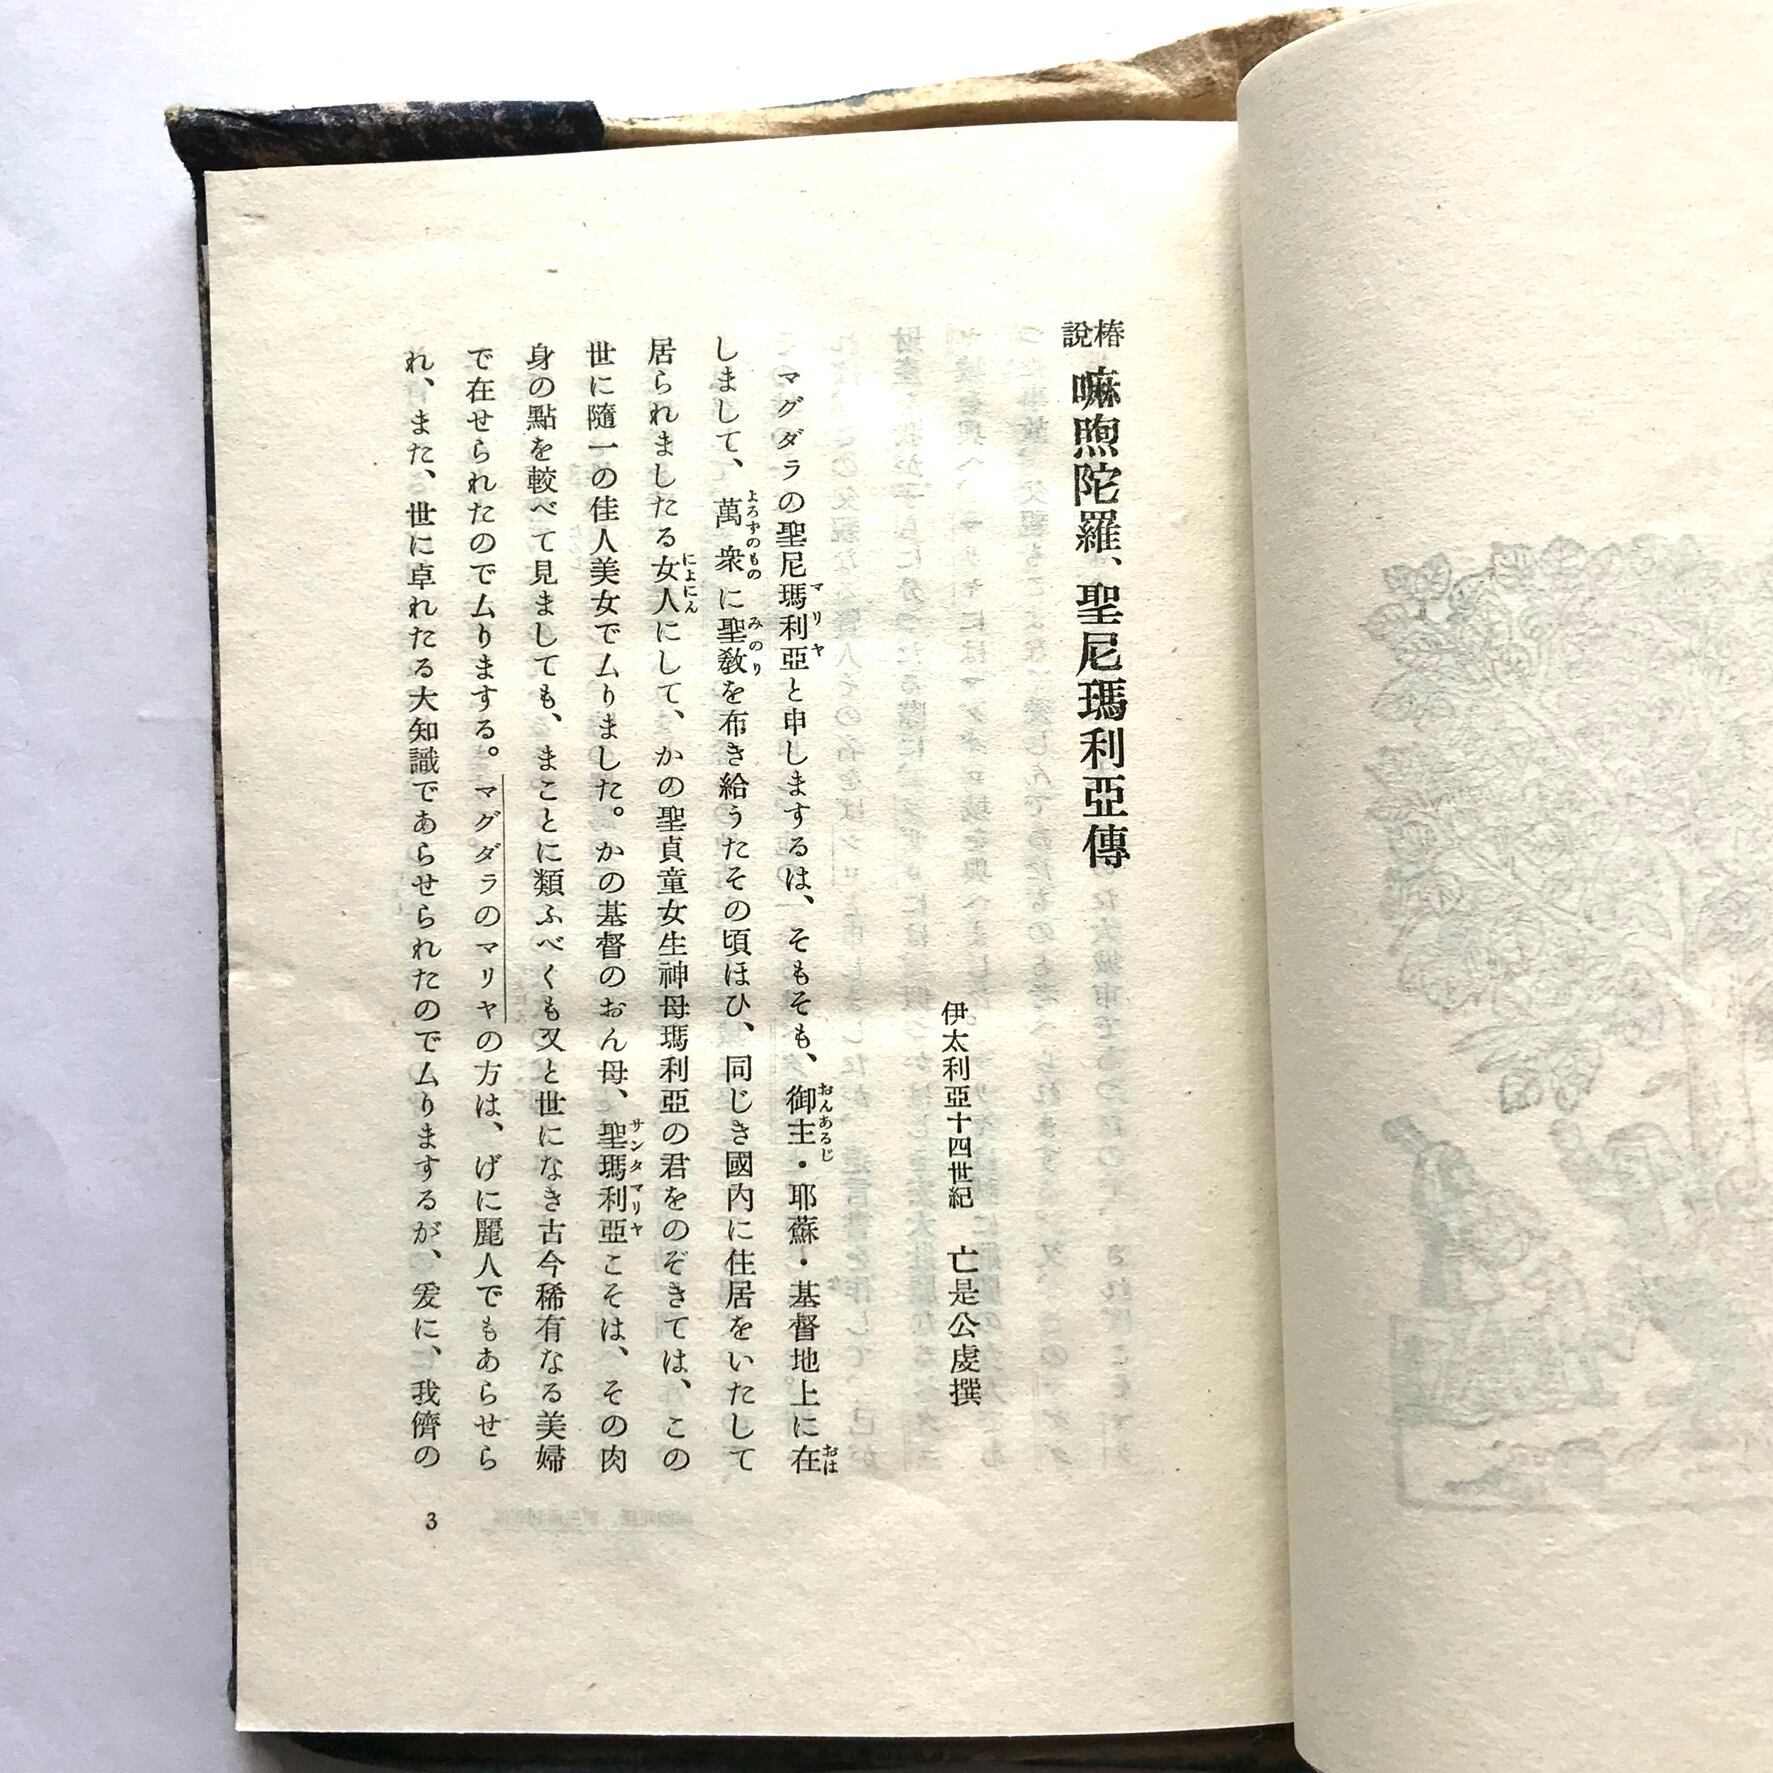 椿說 嘛煦陀羅、聖尼瑪利亞傳
伊太利亞十四世紀 亡是公虔撰
マグダラの聖尼瑪利亞と申しまするは、そもそも、御主・耶蘇・基督地上に在
しまして、萬衆に聖敎を布き給うたその頃ほひ、同じき國内に住居をいたして
居られましたる女人にして、かの聖貞童女生神母瑪利亞の君をのぞきては、この
世に隨一の佳人美女でムりました。かの基督のおん母、聖瑪利亞こそは、その肉
身の點を較べて見ましても、まことに類ふべくも又と世になき古今稀有なる美婦
で在せられたのでムりまする。マグダラのマリヤの方は、げに麗人でもあらせら
れ、また、世に卓れたる大知識であらせられたのでムりまするが、爰に、我儕の
3